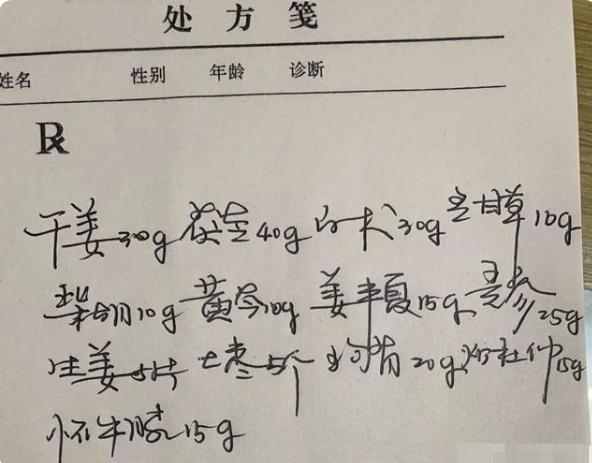 处方笺
姓名 性别 年龄 诊断
℞
干姜30g 茯苓40g 白术30g 炙甘草10g
柴胡10g 黄芩10g 姜半夏15g 党参25g
生姜5片 大枣5个 狗脊20g 炒杜仲15g
怀牛膝15g